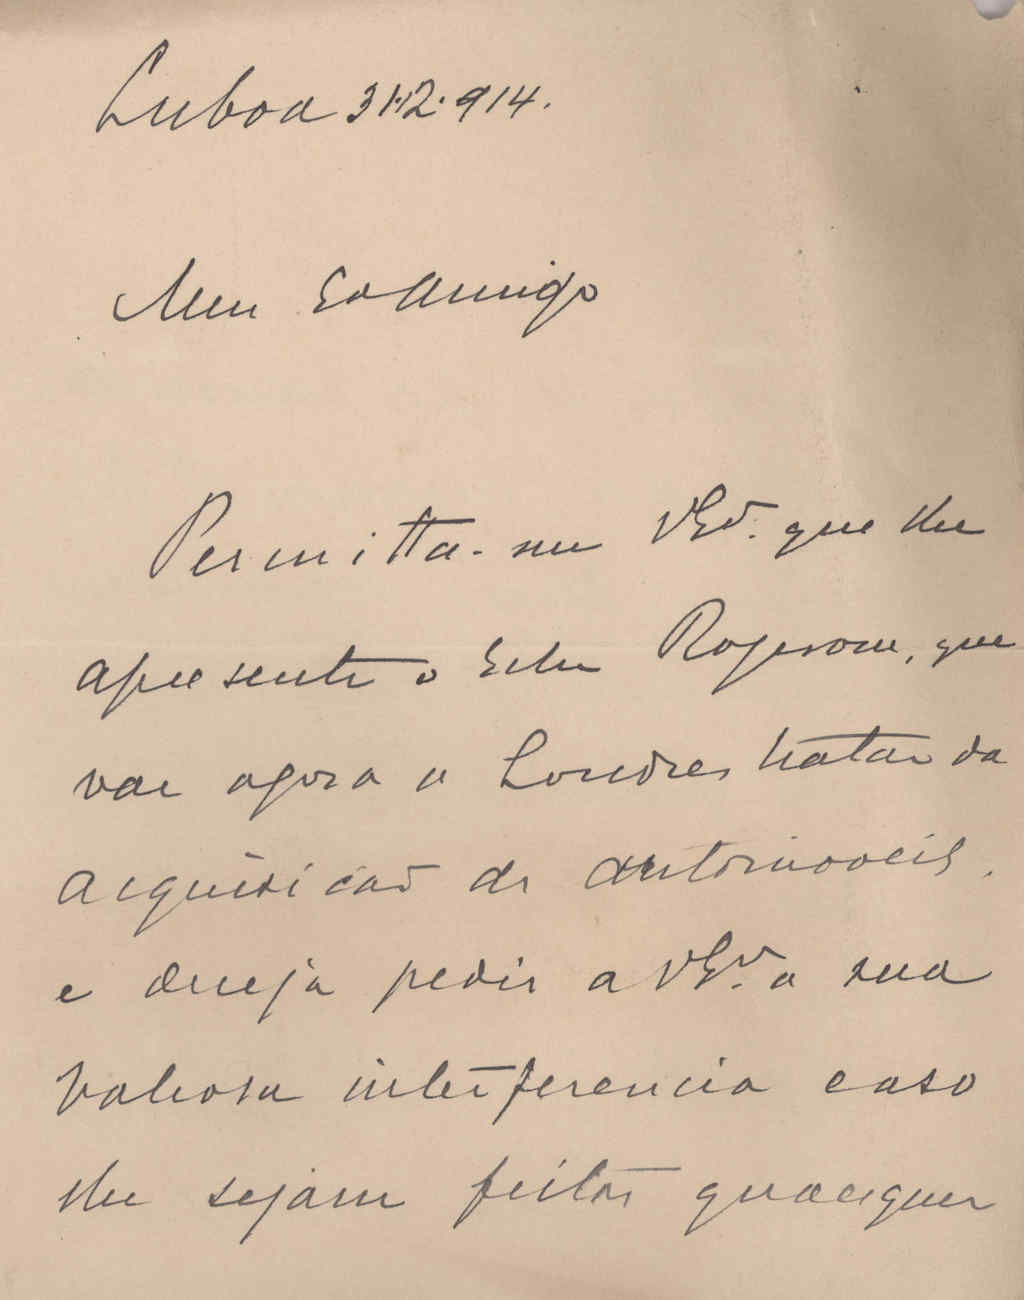 Lisboa 31.12.914.
Meu Exo Amigo
Permitta-me VExa. que lhe
apresente o
vae agora a Londres tratar da
acquisição de automoveis,
e deseja pedir a VExa. a sua
valiosa interferencia caso
lhe sejam feitas quaesquer